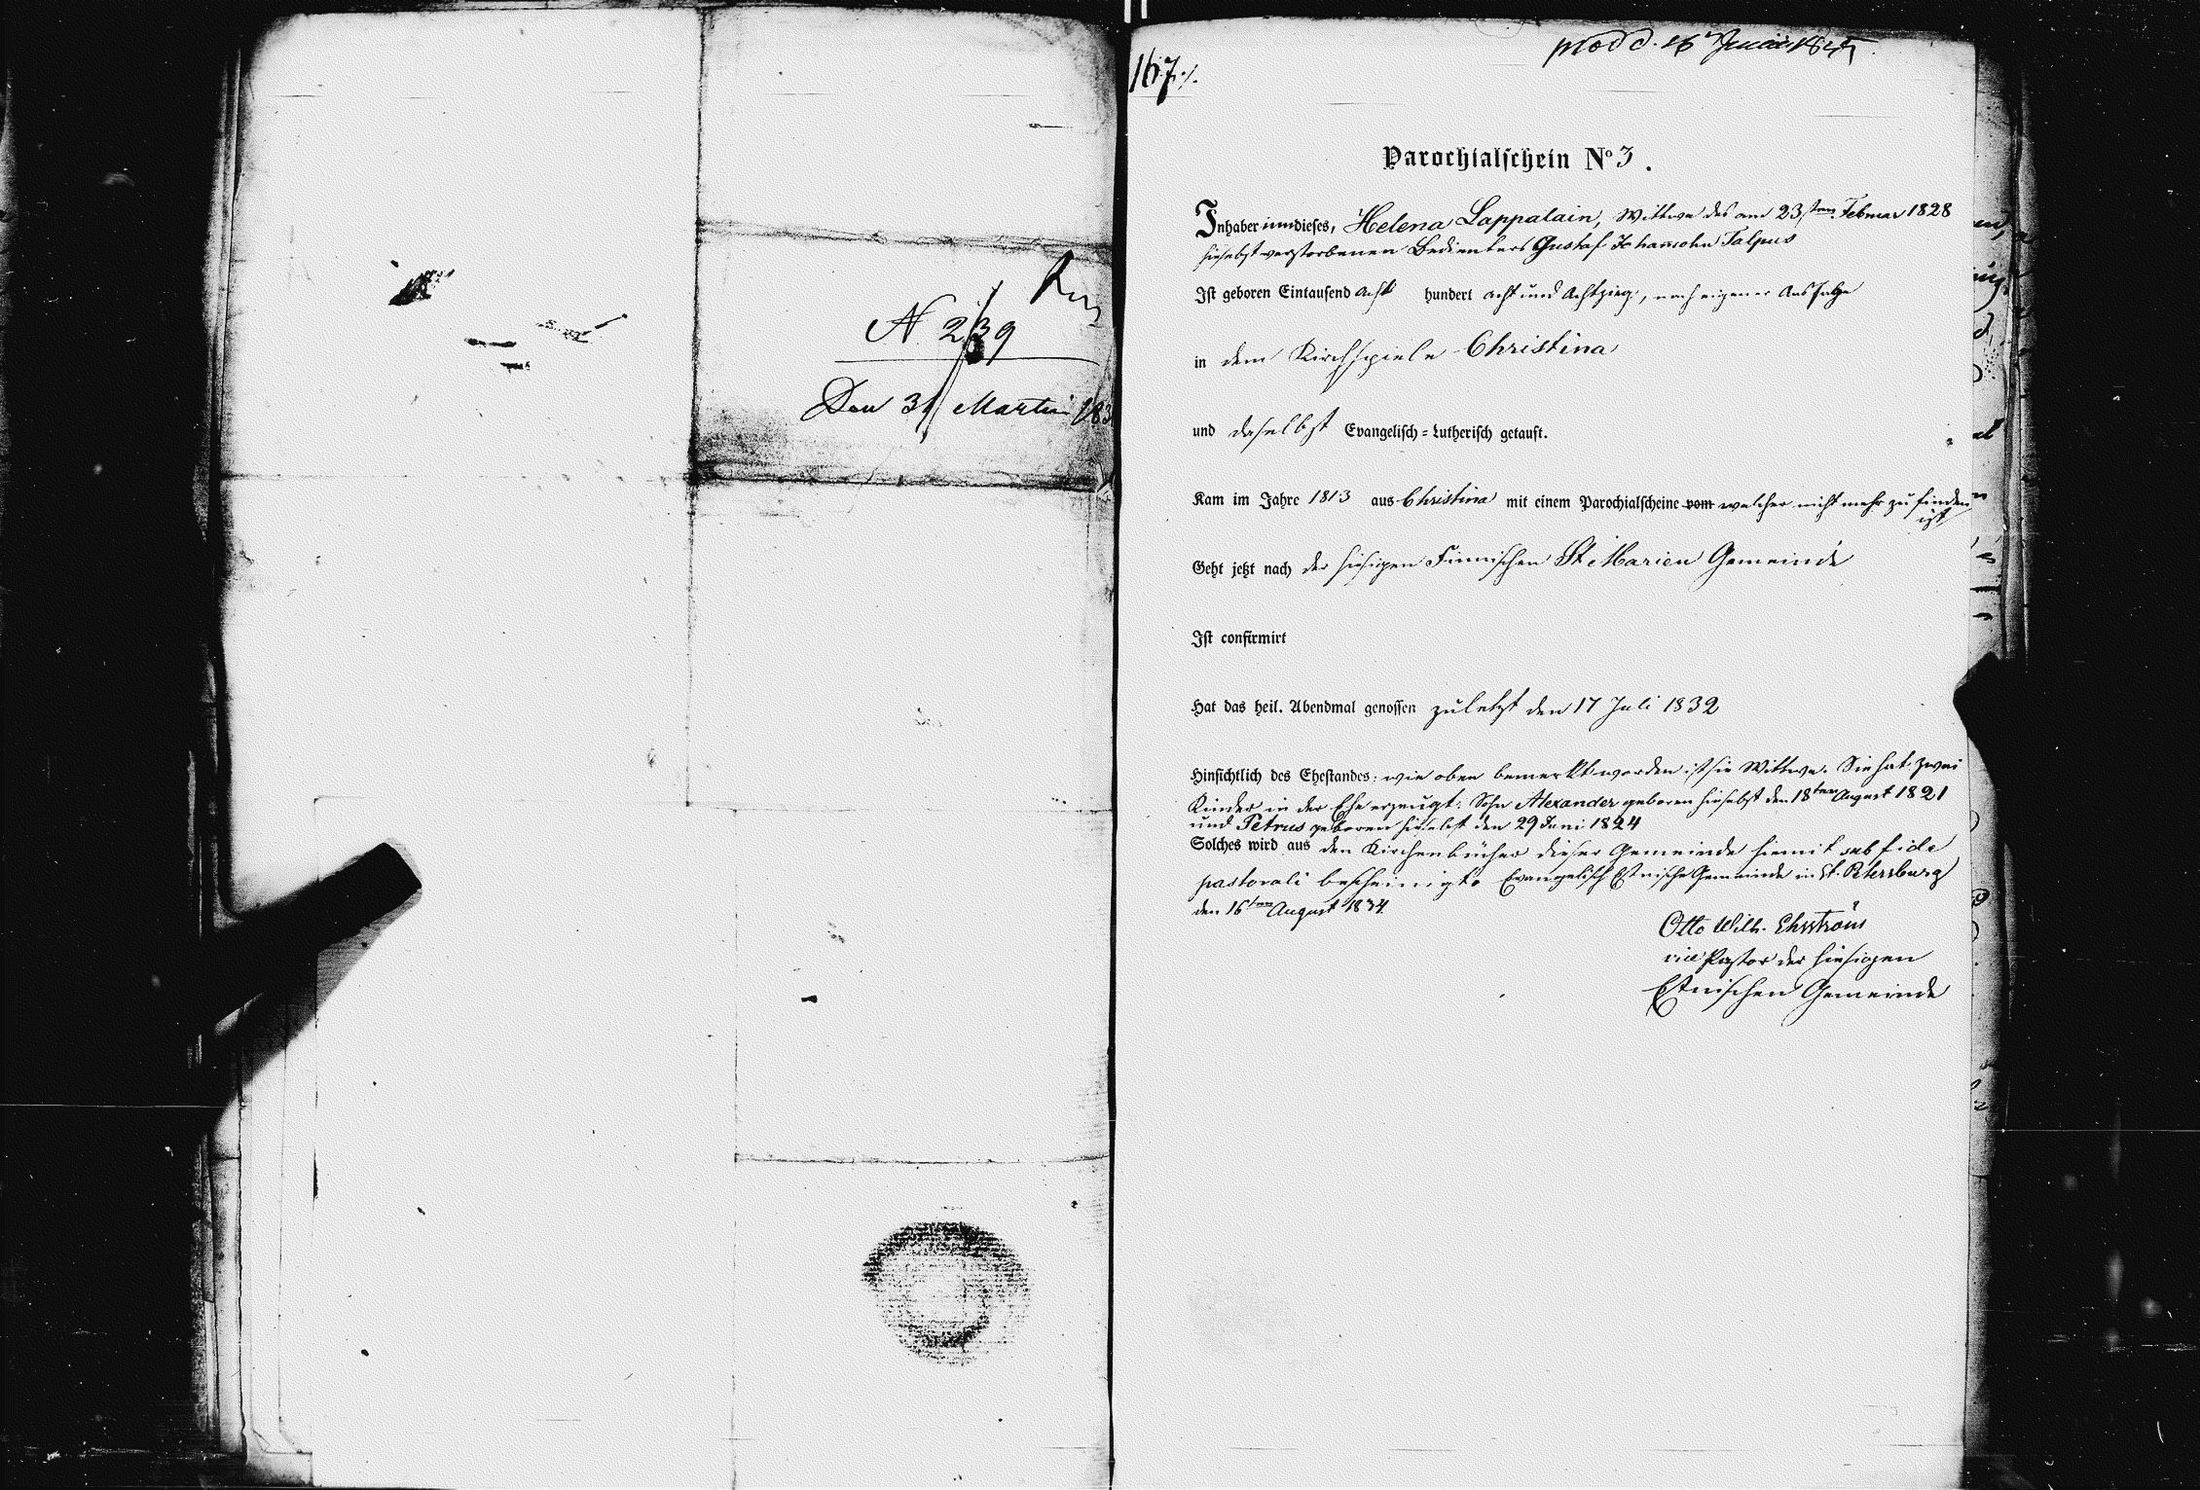 N. 239
Den 31 Martii 183
167./.
prod d. 16 Junii
Parochialschein No 3.
Inhaberinn dieses, Helena Lappalain, Wittwe des am 23sten Februar 1828
hieselbst verstorbenen Bedienters Gustaf Johannsohn Talpus
Ist geboren Eintausend acht hundert acht und achtzig, nach eigener Aussage
in dem Kirchspiele Christina
und daselbst Evangelisch-Lutherisch getauft.
Kam im Jahre 1813 aus Christina mit einem Parochialscheine vom welcher nicht mehr zu finden
ist
Geht jetzt nach der hiesigen Finnischen St Marien Gemeinde
Ist confirmirt
Hat das heil. Abendmal genossen zuletzt den 17 Juli 1832
Hinsichtlich des Ehestandes: wie oben bemerkt worden ist sie Wittwe. Sie hat zwei
Kinder in der Ehe erzeugt: Sohn Alexander geboren hieselbst den 18ten August 1821
und Petrus geboren hieselbst den 29 Juni 1824
Solches wird aus den Kirchenbücher dieser Gemeinde hiemit sub fide
pastorali bescheinigt. Evangelisch Estnische Gemeinde in St. Petersburg
den 16ten August 1834.
Otto Wilh. Ehrström
vice Pastor der hiesigen
Estnischen Gemeinde